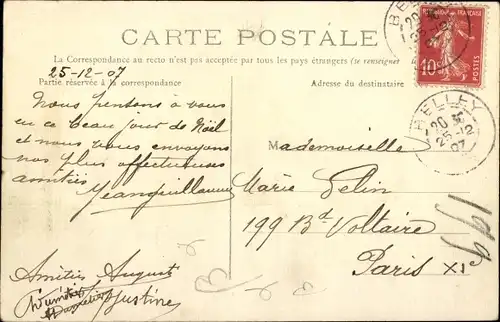 CARTE POSTALE
La Correspondance au recto n'est pas acceptée par tous les pays étrangers (se renseigner
25-12-07
Partie réservée à la correspondance
Adresse du destinataire
Nous pensons à vous
en ce beau jour de Noël
et nous vous envoyons
nos plus affectueuses
amitiés
Jeanguillaume
Amitiés August
Justine
Mademoiselle
Marie Pelin
199 Bd Voltaire
Paris XI
199
RÉPUBLIQUE FRANÇAISE
10
POSTES
BELLEY
20
25-12
07